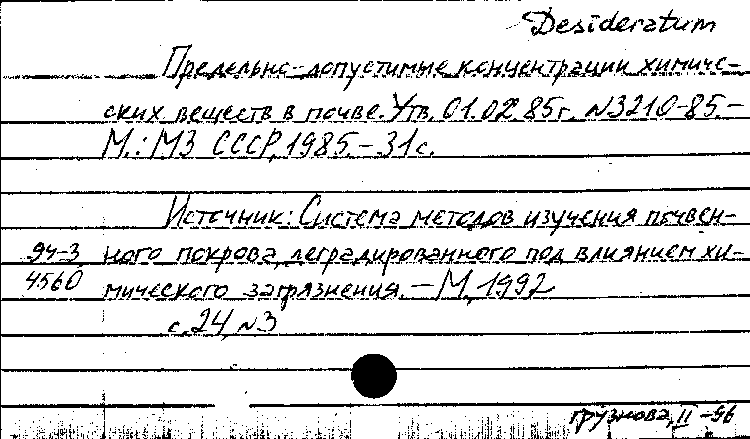 Desideratum
Предельно-допустимые концентрации химиче-
ских веществ в почве. Утв. 01.02.85г. N3210-85.-
М.: МЗ СССР, 1985.-31с.
Источник: Система методов изучения почвен-
94-3 ного покрова, деградированного под влиянием хи-
4560 мического загрязнения. - М., 1992
с.24, N3
грузнова, II -96